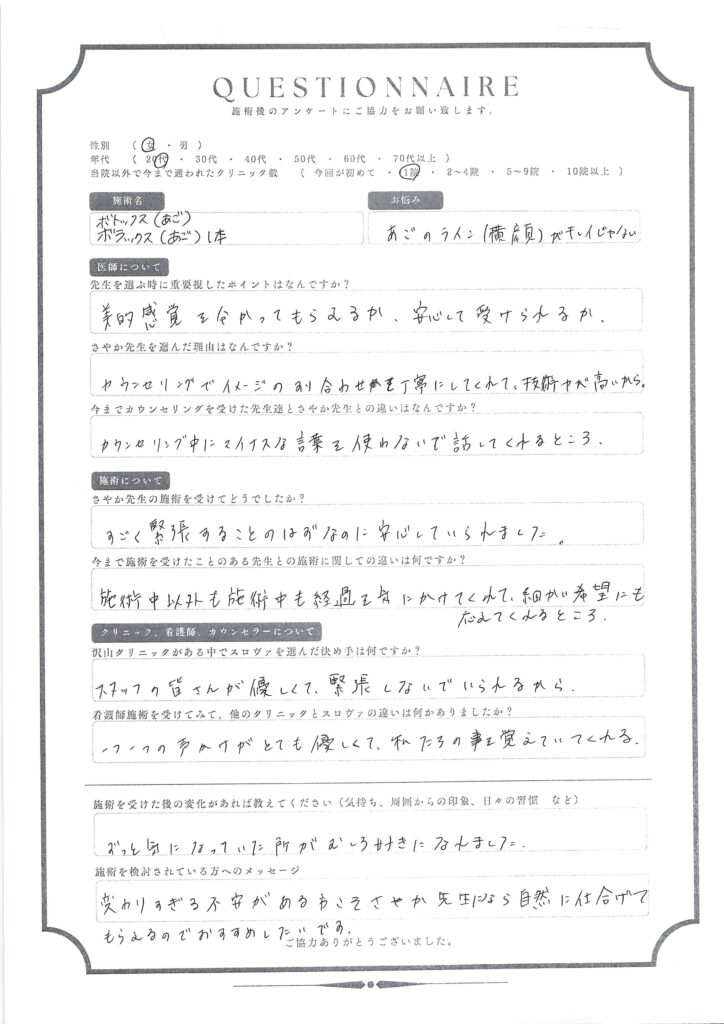 QUESTIONNAIRE
施術後のアンケートにご協力をお願い致します。
性別 ( 女 ・ 男 )
年代 ( 20代 ・ 30代 ・ 40代 ・ 50代 ・ 60代 ・ 70代以上 )
当院以外で今まで通われたクリニック数 ( 今回が初めて ・ 1院 ・ 2~4院 ・ 5~9院 ・ 10院以上 )
施術名
ボトックス(あご)
ボラックス(あご) 1本
お悩み
あごのライン(横顔)がキレイじゃない
医師について
先生を選ぶ時に重要視したポイントはなんですか?
美的感覚を分かってもらえるか、安心して受けられるか.
さやか先生を選んだ理由はなんですか?
カウンセリングでイメージのすり合わせを丁寧にしてくれて、技術力が高いから。
今までカウンセリングを受けた先生達とさやか先生との違いはなんですか?
カウンセリング中にマイナスな言葉を使わないで話してくれるところ.
施術について
さやか先生の施術を受けてどうでしたか?
すごく緊張することのはずなのに安心していられました。
今まで施術を受けたことのある先生との施術に関しての違いは何ですか?
施術中以外も施術中も経過を気にかけてくれて、細かい希望にも
応えてくれるところ.
クリニック、看護師、カウンセラーについて
沢山クリニックがある中でスロヴァを選んだ決め手は何ですか?
スタッフの皆さんが優しくて、緊張しないでいられるから.
看護師施術を受けてみて、他のクリニックとスロヴァの違いは何かありましたか?
一つ一つの声かけがとても優しくて、私たちの事を覚えていてくれる.
施術を受けた後の変化があれば教えてください(気持ち、周囲からの印象、日々の習慣 など)
ずっと気になっていた所がむしろ好きになれました.
施術を検討されている方へのメッセージ
変わりすぎる不安がある方こそさやか先生になら自然に仕上げて
もらえるのでおすすめしたいです.
ご協力ありがとうございました。